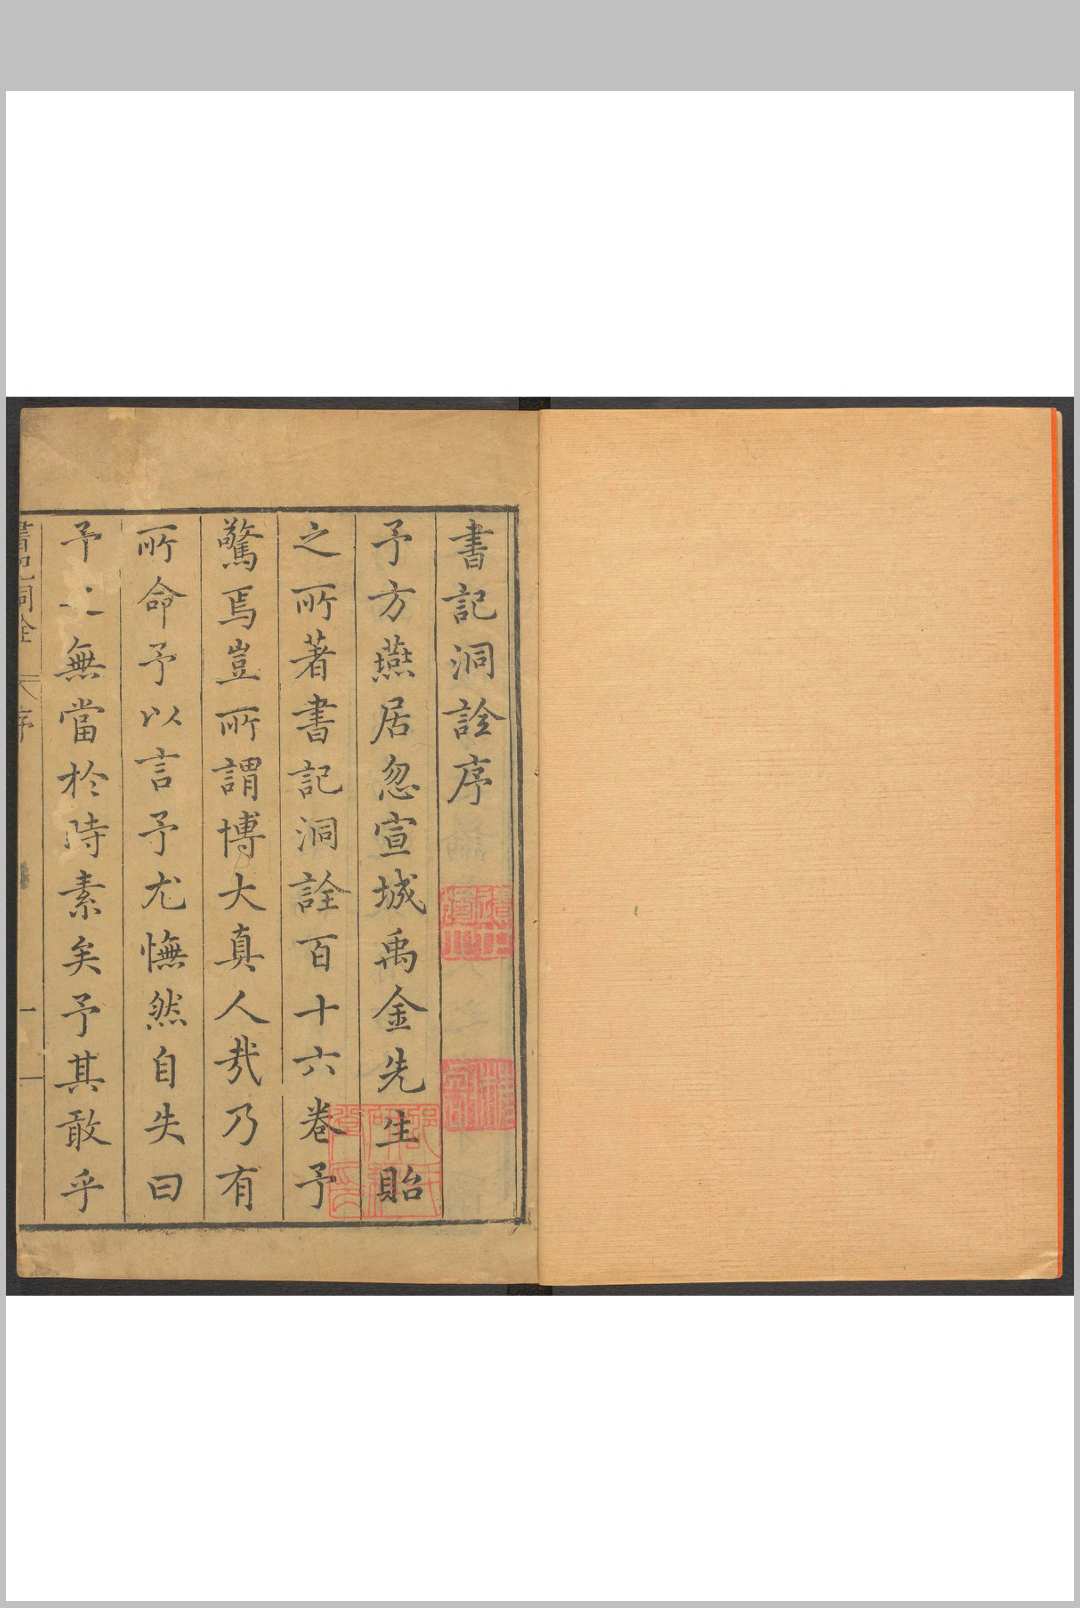 書記洞詮序
予方燕居忽宣城禹金先生貽
之所著書記洞詮百十六卷予
驚焉豈所謂博大真人哉乃有
所命予以言予尤憮然自失曰
予無當於時素矣予其敢乎
書記洞詮 序 一